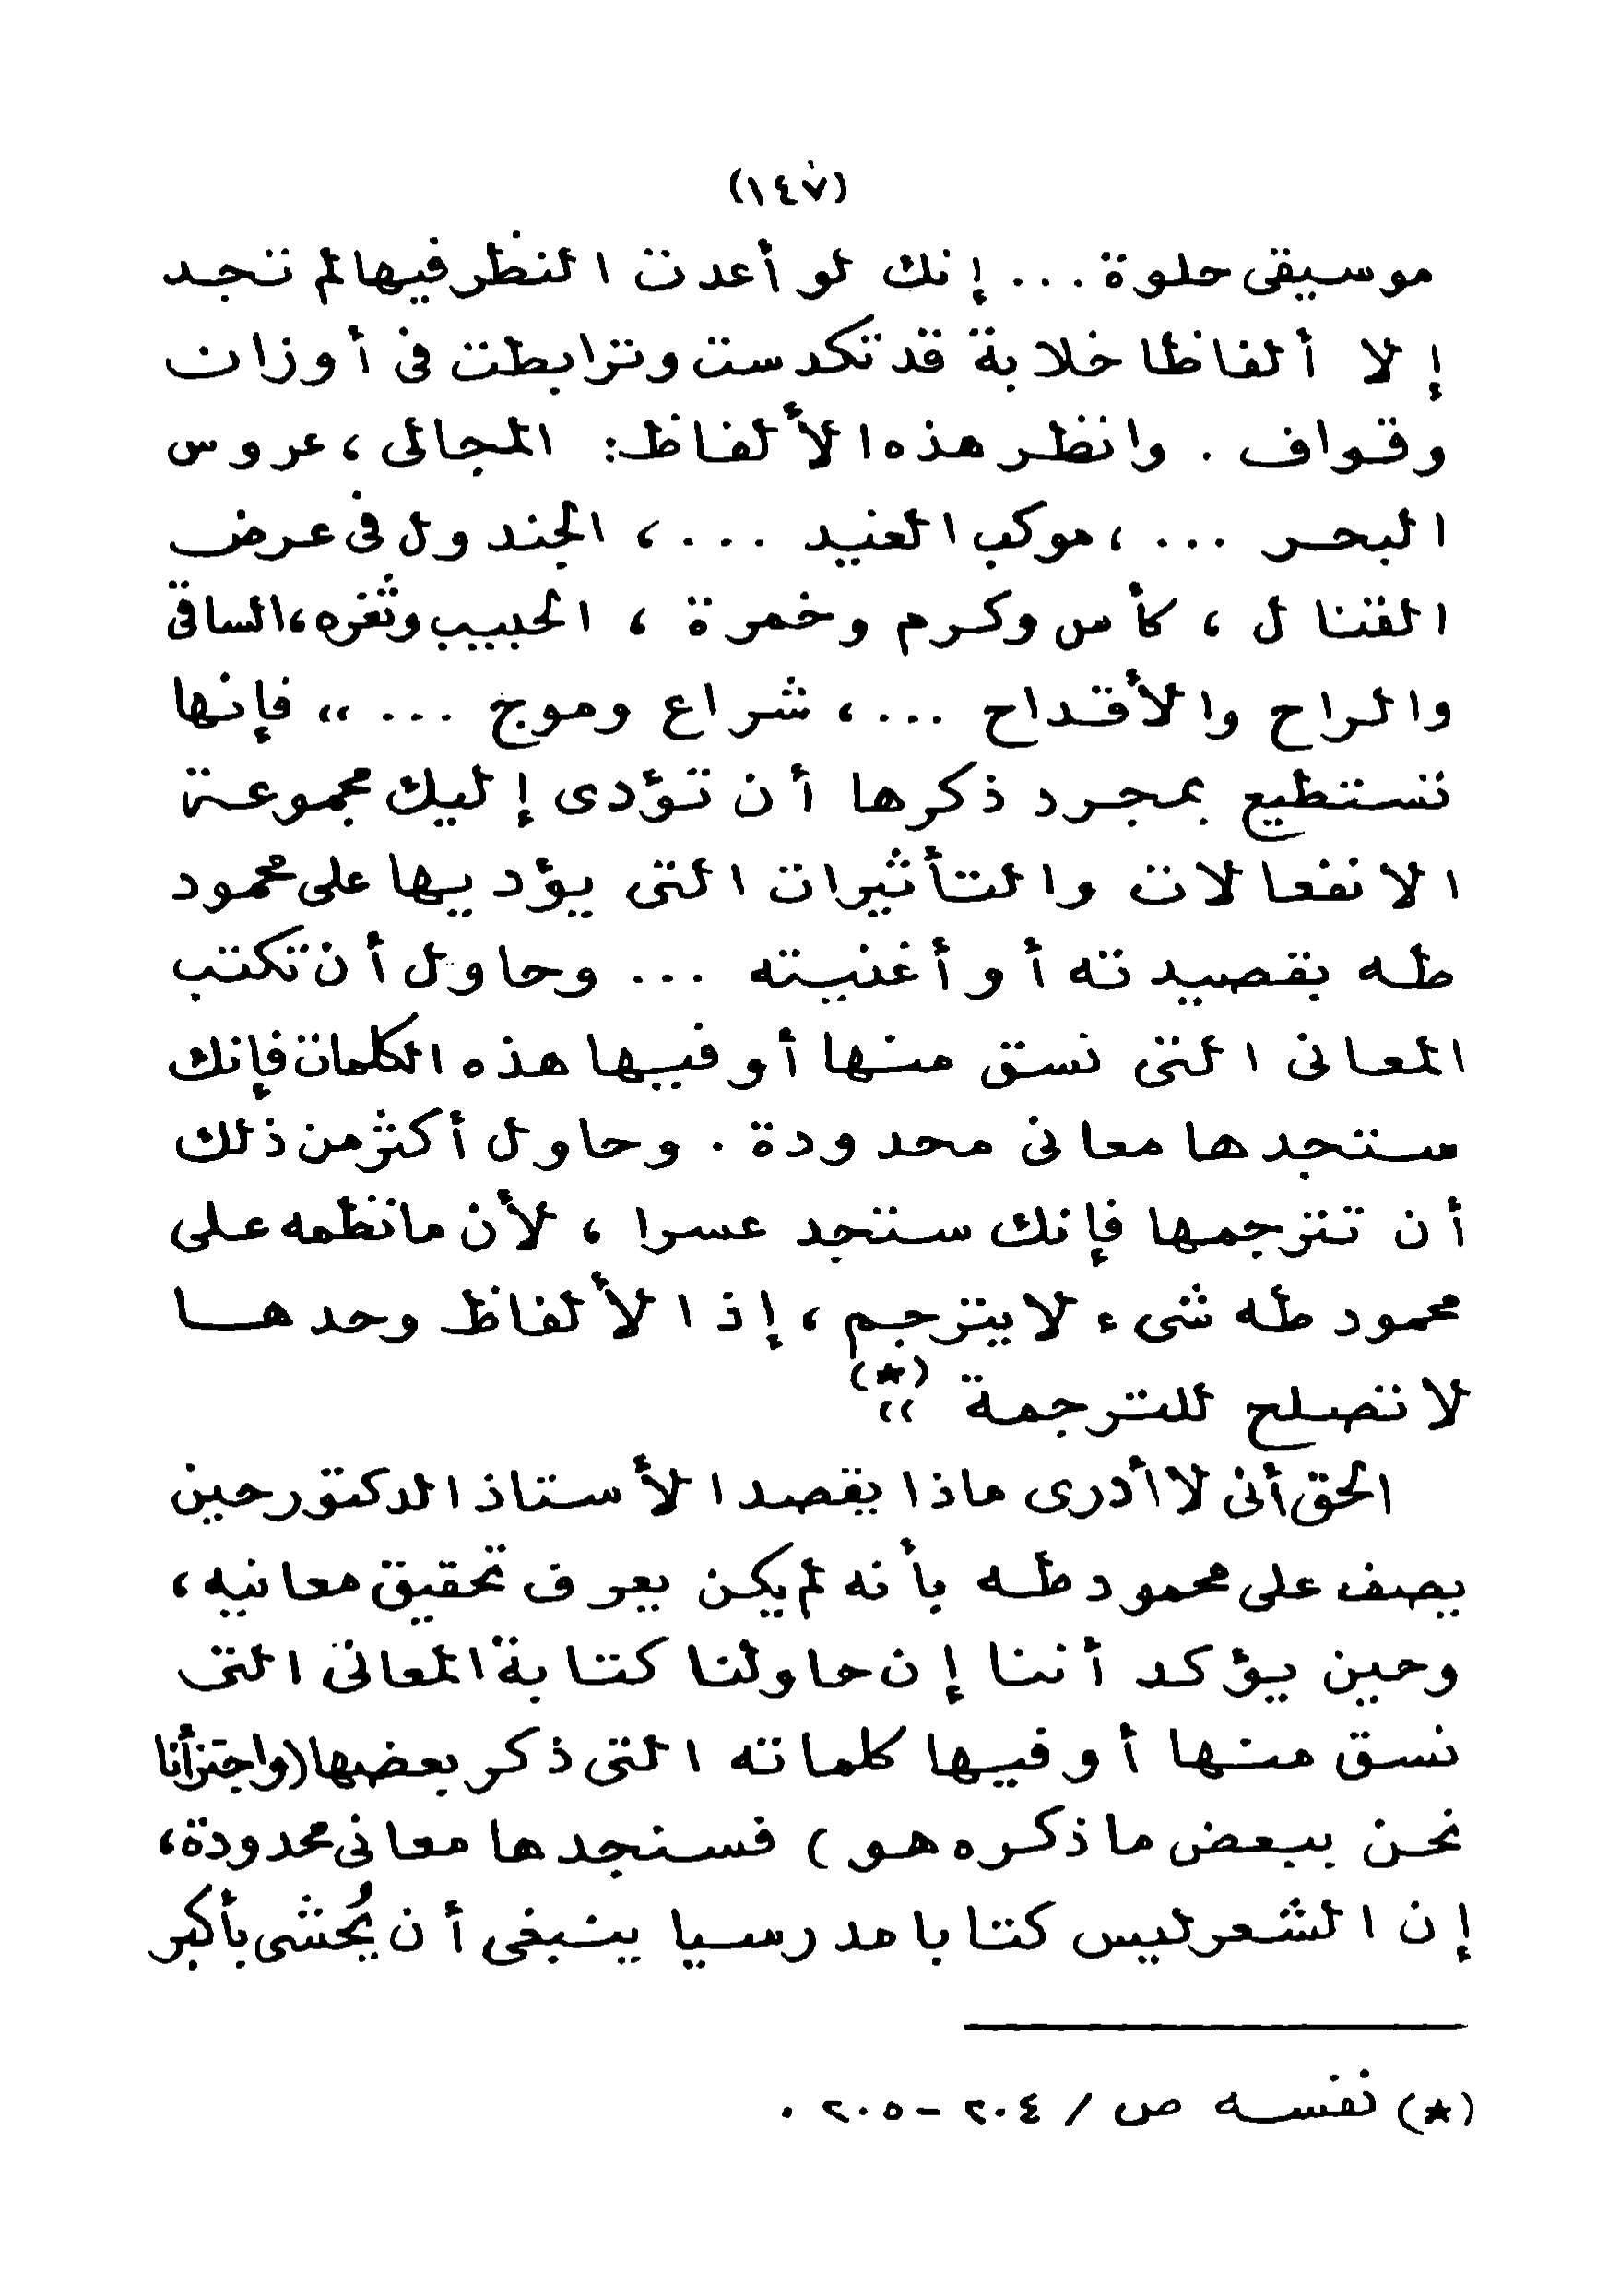 (١٤٧)
موسيقى حلوة ... إنك لو أعدت النظر فيها لم تجد
إلا ألفاظا خلابة قد تكدست وترابطت فى أوزان
وقواف . وانظر هذه الألفاظ: المجالى ، عروس
البحر ... ، موكب الغيد ... ، الجندول فى عرض
القنال ، كأس وكرم وخمرة ، الحبيب وثغره ، الساقى
والراح والأقداح ... ، شراع وموج ... ،، فإنها
تستطيع بمجرد ذكرها أن تؤدى إليك مجموعة
الانفعالات والتأثيرات التى يؤديها على محمود
طه بقصيدته أو أغنيته ... وحاول أن تكتب
المعانى التى نسق منها أو فيها هذه الكلمات فإنك
ستجدها معانى محدودة . وحاول أكثر من ذلك
أن تترجمها فإنك ستجد عسرا ، لأن ما نظمه على
محمود طه شىء لا يترجم ، إذ الألفاظ وحدها
لا تصلح للترجمة ،،(*)
الحق أنى لا أدرى ماذا يقصد الأستاذ الدكتور حين
يصف على محمود طه بأنه لم يكن يعرف تحقيق معانيه ،
وحين يؤكد أننا إن حاولنا كتابة المعانى التى
نسق منها أو فيها كلماته التى ذكر بعضها (واجتزأنا
نحن ببعض ما ذكره هو) فسنجدها معانى محدودة ،
إن الشعر ليس كتابا مدرسيا ينبغى أن يُحشى بأكبر
(*) نفسه ص / ٢٠٤ - ٢٠٥ .